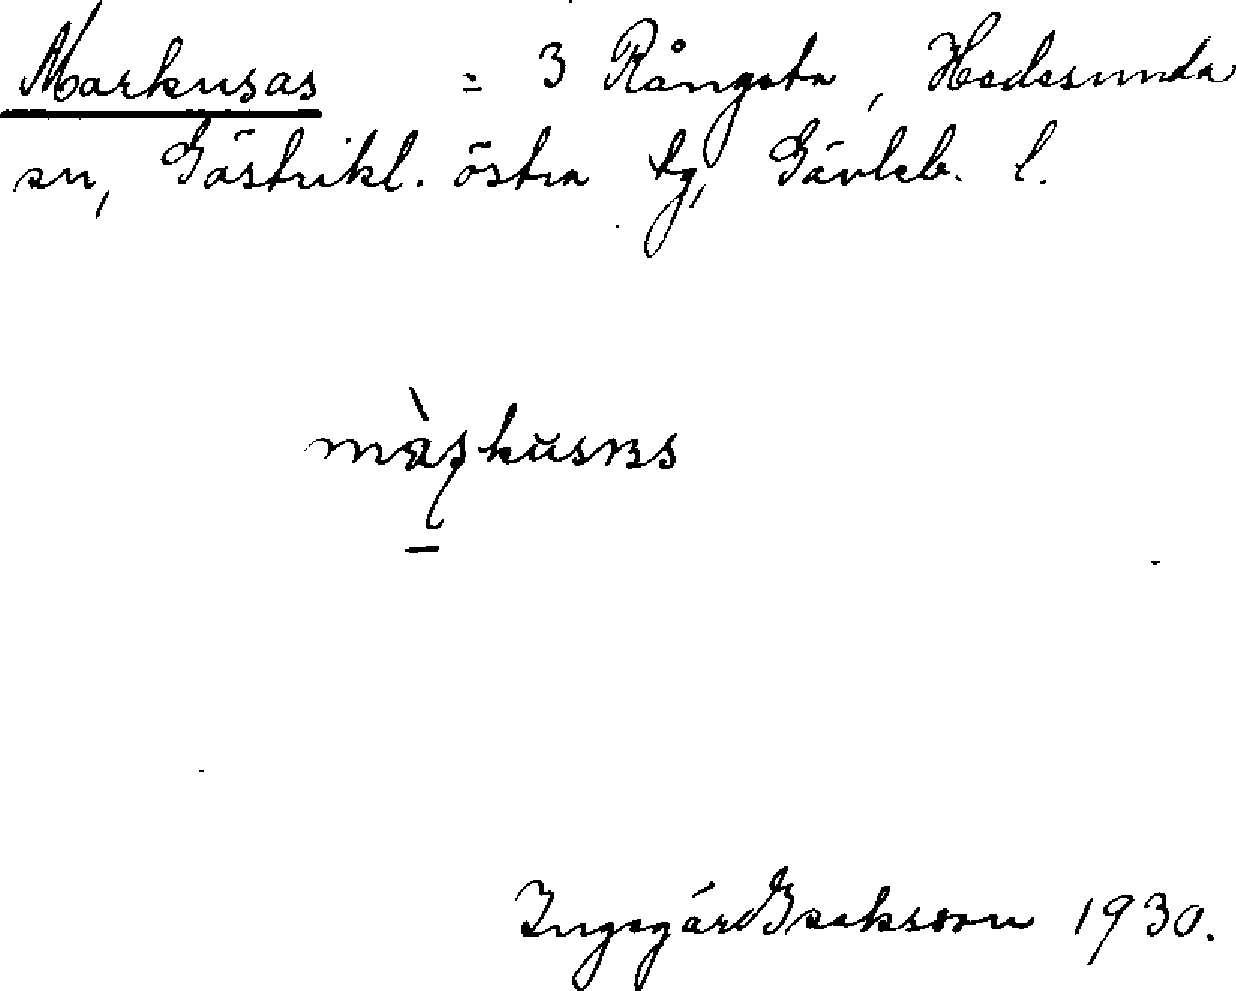 Markusas = 3 Rångsta, Hedesunda
sn, Gästrikl. östra tg, Gävleb. l.
Ingegärd Isaksson 1930.